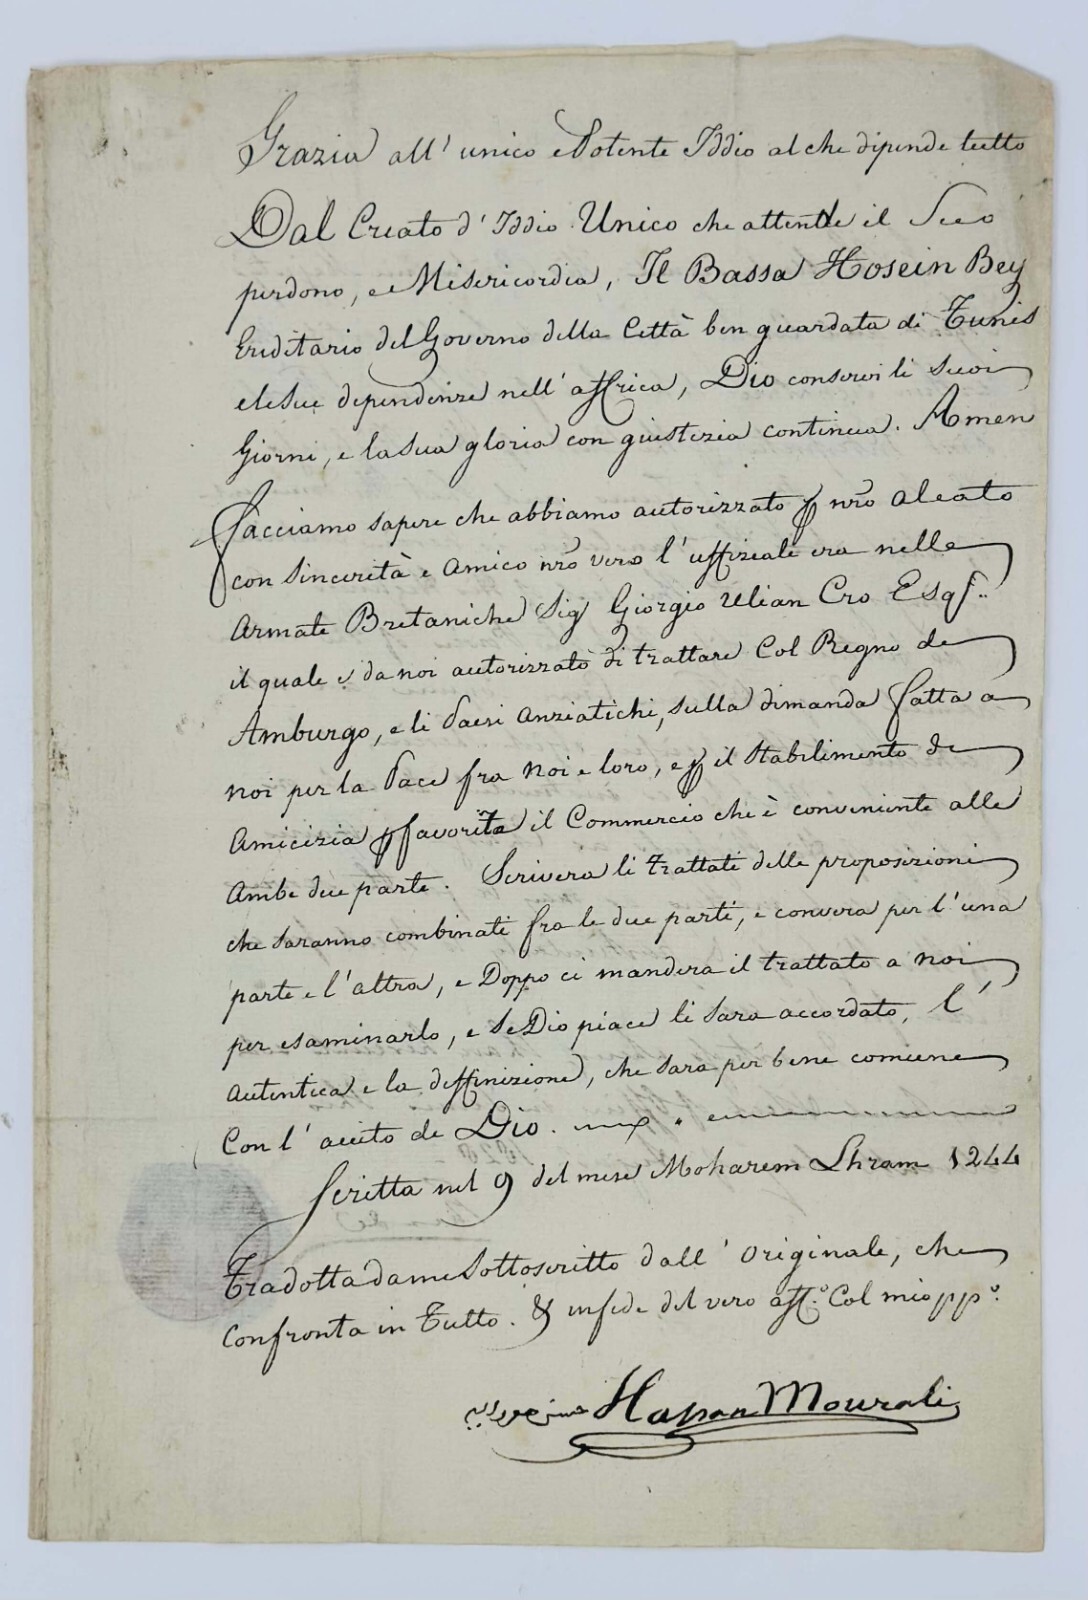 Grazia all' unico e Potente Iddio al che dipende tutto
Dal Creato d' Iddio Unico che attende il Suo
perdono, e Misericordia, Il Bassa Hosein Bey
Ereditario del Governo della Città ben guardata di Tunis
e le sue dependenze nell' affrica, Dio conservi li Suoi
Giorni, e la Sua gloria con giustezia continua. Amen
Facciamo sapere che abbiamo autorizzato p nro aleato
con sincerità e amico nro vero l' uffiziale era nelle
Armate Bretaniche Sig Giorgio Ulian Cro Esqr..
il quale e da noi autorizzato di trattare Col Regno de
Amburgo, e li Paesi anziatichi, sulla dimanda fatta a
noi per la Pace fra noi e loro, e p il stabilimento de
Amicizia p favorita il Commercio che è conveniente alle
Ambe due parte. Scrivera li trattati delle proposizioni
che saranno combinati fra le due parti, e convera per l' una
parte e l' altra, e Doppo ci mandera il trattato a noi
per esaminarlo, e se Dio piace li sara accordato, l'
autentica e la deffinizione, che sara per bene comune
Con l' aiuto de Dio.
Scritta nel 9 del mese Moharem Lhram 1244
Tradotta da me Sottoscritto dall' originale, che
Confronta in Tutto. & in fede del vero aff.o Col mio pp.o
حسن مورالي Hassan Mourali